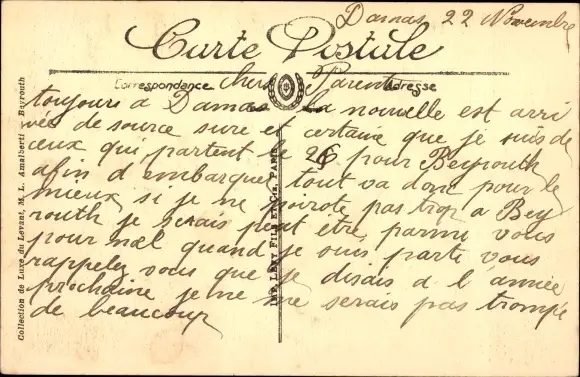 Damas, 22 Novembre
Carte Postale
Correspondance
Adresse
chers Parents
toujours a Damas la nouvelle est arri
vée de source sure et certaine que je suis de
ceux qui partent le 26 pour Beyrouth
afin d embarquer tout va donc pour le
mieux si je ne moirote pas trop a Bey
routh je serais peut être parmi vous
pour noel quand je suis parti vous
rappelez vous que je disais a l année
prochaine je ne me serais pas trompé
de beaucoup
Collection de Luxe du Levant, M. L. Amalberti - Beyrouth
IMP. LEVY FILS ET Cie, PARIS